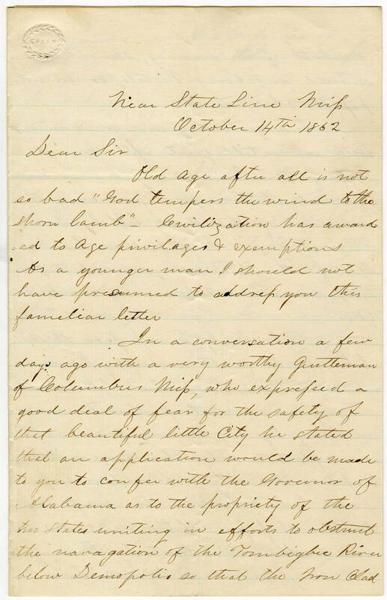 Near State Line Miſs
October 14th 1862
Dear Sir
Old Age after all is not
so bad "God tempers the wind to the
shorn lamb" - Civilization has award
-ed to Age privilages & exemptions
As a younger man I should not
have presumed to addreſs you this
familiar letter
In a conversation a few
days ago with a very worthy Gentleman
of Columbus Miſs, who expreſsed a
good deal of fear for the safety of
that beautiful little City he stated
that an application would be made
to you to confer with the Governor of
Alabama as to the propriety of the
States uniting in efforts to obstruct
the navagation of the Tombigbee River
below Demopolis so that the Iron Clad